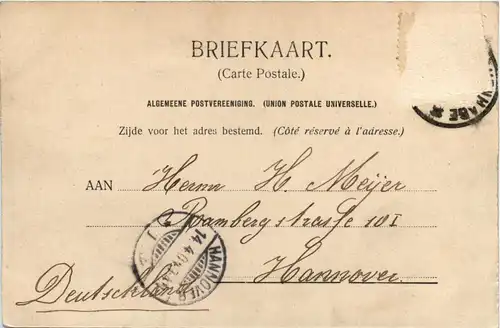 BRIEFKAART.
(Carte Postale.)
ALGEMEENE POSTVEREENIGING. (UNION POSTALE UNIVERSELLE.)
Zijde voor het adres bestemd. (Côté réservé à l'adresse.)
AAN Herrn H. Meijer
Rambergstrasse 10 I
Hannover.
Deutschland
HANNOVER
14.4.0